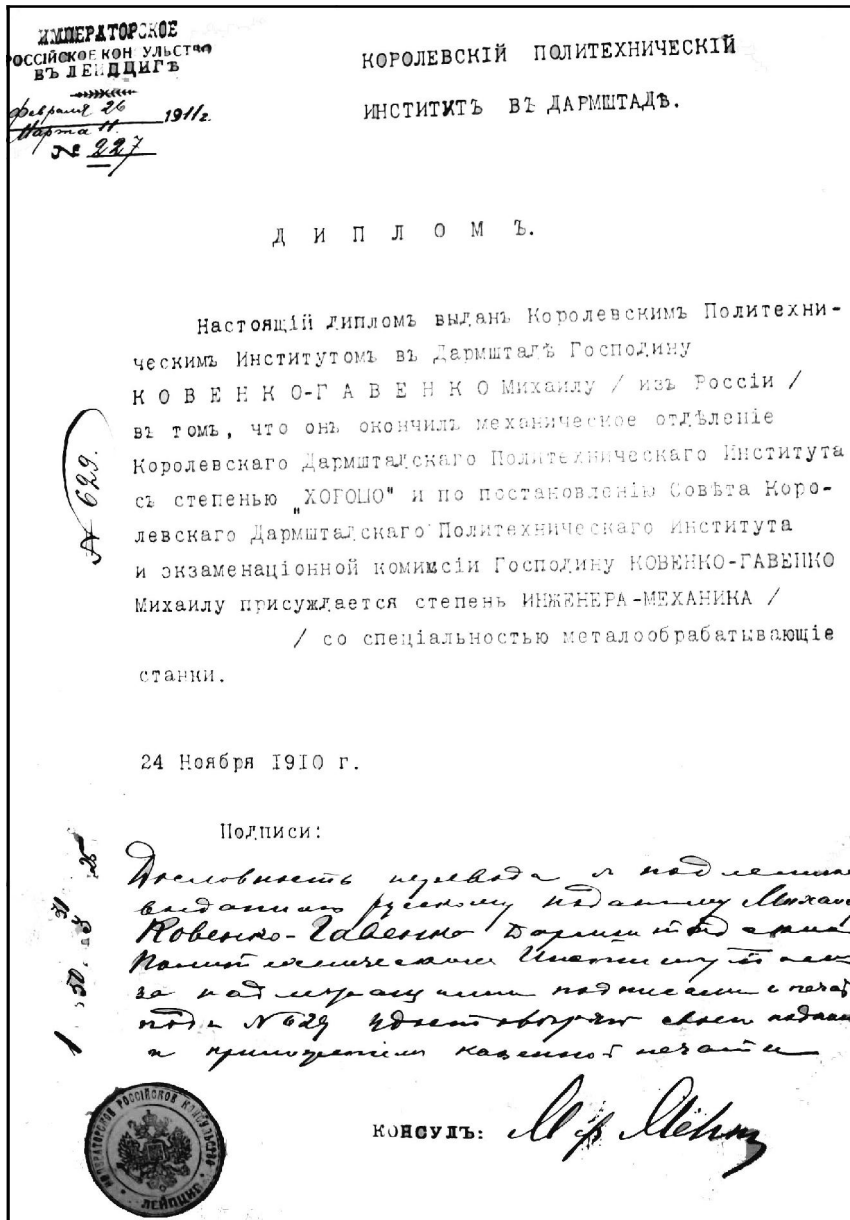 ИМПЕРАТОРСКОЕ
РОССІЙСКОЕ КОНСУЛЬСТВО
ВЪ ЛЕЙПЦИГѢ
Февраля 26
Марта 11. 1911 г.
№ 227
КОРОЛЕВСКІЙ ПОЛИТЕХНИЧЕСКІЙ
ИНСТИТУТЪ ВЪ ДАРМШТАДѢ.
Д И П Л О М Ъ.
Настоящій дипломъ выданъ Королевскимъ Политехни-
ческимъ Институтомъ въ Дармштадѣ Господину
К О В Е Н К О-Г А В Е Н К О Михаилу / изъ Россіи /
въ томъ, что онъ окончилъ механическое отдѣленіе
Королевскаго Дармштадскаго Политехническаго Института
съ степенью „ХОРОШО" и по постановленію Совѣта Коро-
левскаго Дармштадскаго Политехническаго Института
и экзаменаціонной комиссіи Господину КОВЕНКО-ГАВЕНКО
Михаилу присуждается степень ИНЖЕНЕРА-МЕХАНИКА /
/ со спеціальностью металообрабатывающіе
станки.
№ 629.
24 Ноября 1910 г.
Подписи:
Дословность перевода съ подлинн
выданнаго русскому подданному Михаи
Ковенко-Гавенко Дармштадскимъ
Политехническимъ Институтомъ
за надлежащими подписями и печат
подъ № 629 удостовѣряю своею подпи
и приложеніемъ казенной печати
КОНСУЛЪ:
ИМПЕРАТОРСКОЕ РОССІЙСКОЕ КОНСУЛЬСТВО
ЛЕЙПЦИГ